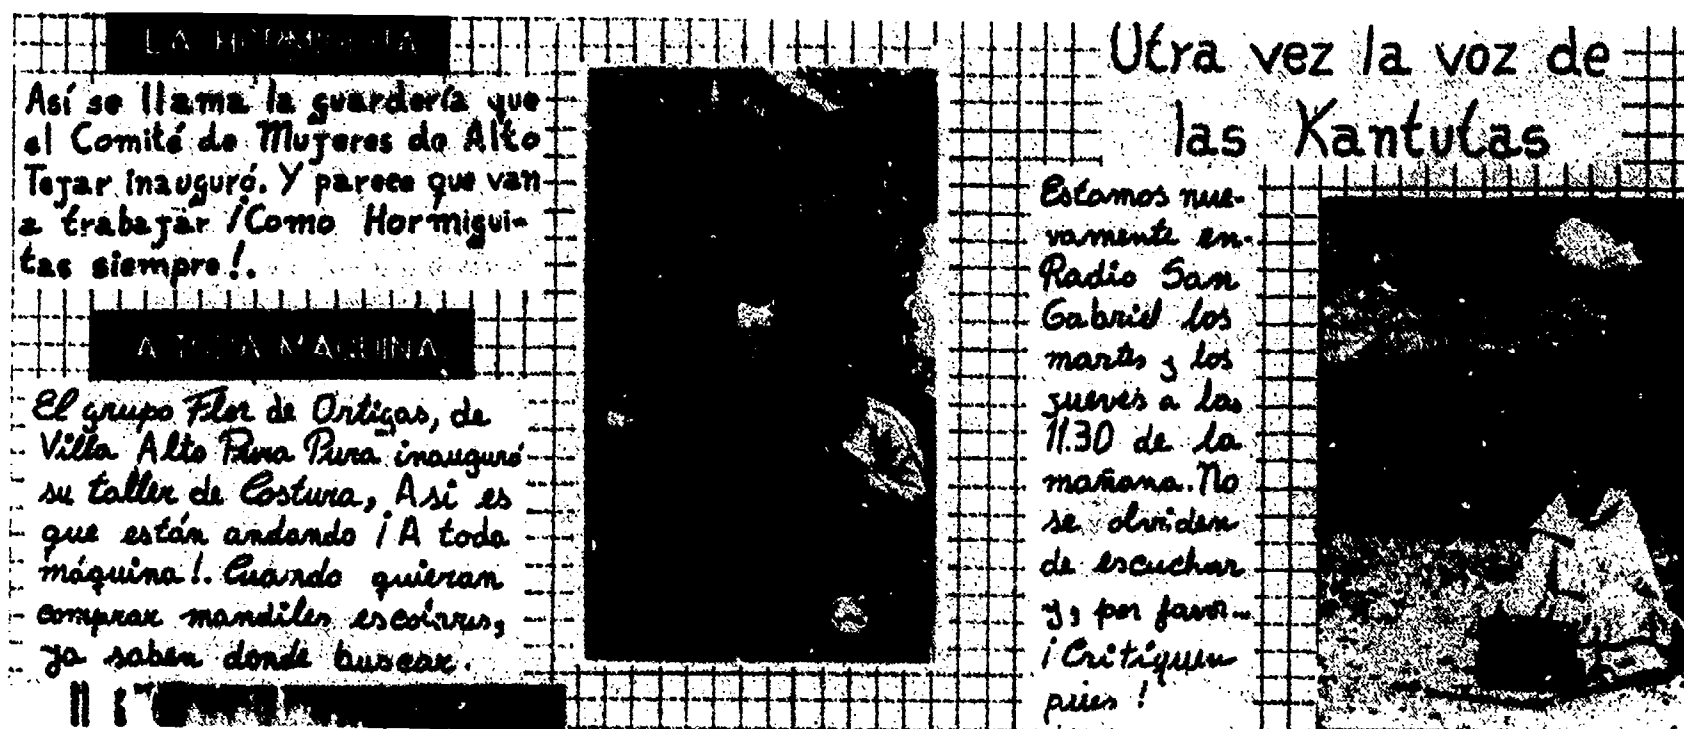 LA HORMIGUITA
Así se llama la guardería que
el Comité de Mujeres de Alto
Tejar inauguró. Y parece que van
a trabajar ¡Como Hormigui-
tas siempre!.
A TODA MAQUINA
El grupo Flor de Ortigas, de
Villa Alto Pura Pura inauguró
su taller de Costura, Asi es
que están andando ¡A toda
máquina!. Cuando quieran
comprar mandiles escolares,
ya saben donde buscar.
Otra vez la voz de
las Kantutas
Estamos nue-
vamente en
Radio San
Gabriel los
martes y los
jueves a las
11.30 de la
mañana. No
se olviden
de escuchar
y, por favor...
¡Critiquen
pues!